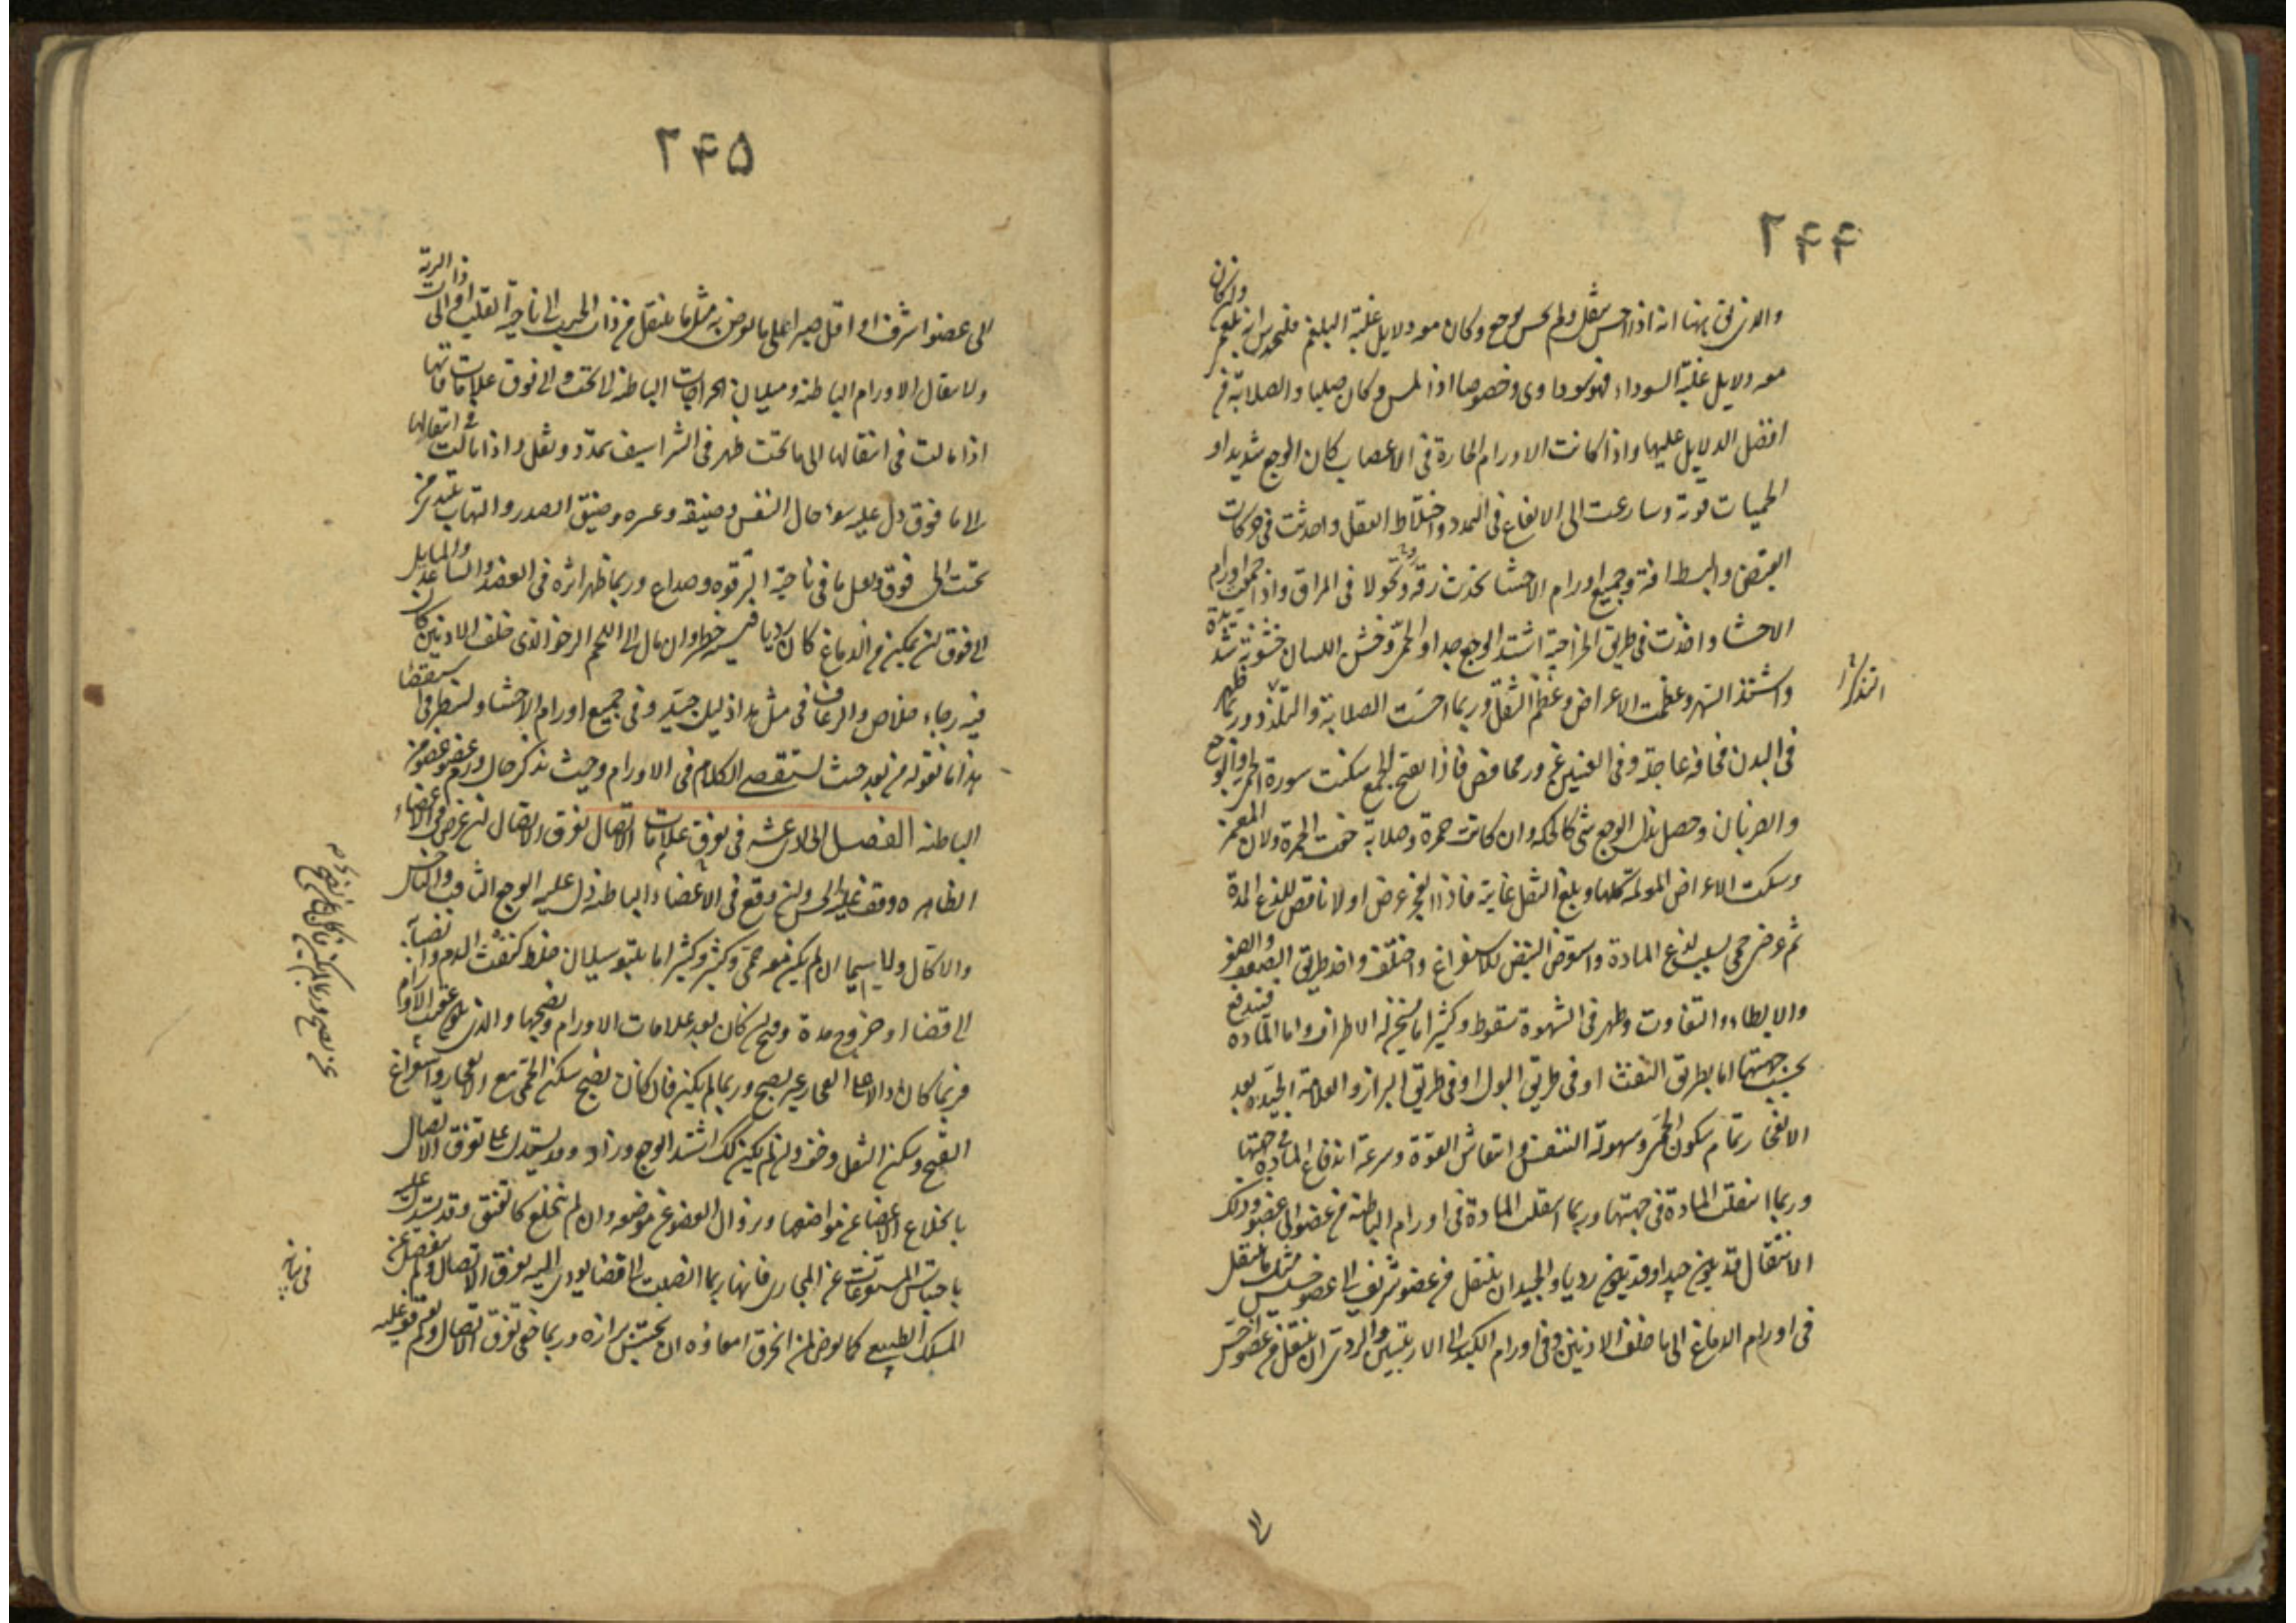 ۲۴۴
وان كان
والذى نحن ههنا انه اذا احس بثقل ولم يحس بوجع وكان معه دلايل غلبة البلغم فليحدس انه بلغمى
معه دلايل غلبة السوداء فهو سوداوى وخصوصا اذا لمس وكان صلبا والصلابة من
افضل الدلايل عليها واذا كانت الاورام الحارة فى الاعصاب كان الوجع شديدا و
الحميات قوية وسارعت الى الايقاع فى التمدد واختلاط العقل واحدثت فى حركات
القبض والبسط افة وجميع اورام الاحشا يحدث رقة ونحولا فى المراق واذا جمعت اورام
الاحشا واخذت فى طريق الخراجية اشتد الوجع جدا والحمى وخشن اللسان خشونة شديدة
واشتد السهر وعظمت الاعراض وعظم الثقل وربما احست الصلابة والتلبد وربما ظهر
فى البدن نحافة عاجلة وفى العينين غؤر مغافص فاذا تقيح الجمع سكنت سورة الحمى والوجع
والضربان وحصل بدل الوجع شى كالحكة وان كانت حمرة وصلابة خفت الحمرة ولان المغمز
وسكنت الاعراض المولمة كلها وبلغ الثقل غايته فاذا انفجر عرض اولا نافض للذع المدة
ثم عرض حمى بسبب لذع المادة واستعرض النبض للاستفراغ واختلف واخذ طريق الضعف والصغر
والابطاء والتفاوت وظهر فى الشهوة سقوط وكثيرا ما يسخن له الاطراف واما المادة فيندفع
بحسب جهتها اما بطريق النفث او فى طريق البول او فى طريق البراز والعلامة الجيدة بعد
الانفجار تمام سكون الحمى وسهولة التنفس وانتعاش القوة وسرعة اندفاع المادة فى جهتها
وربما انتقلت المادة فى جهتها وربما انتقلت المادة فى اورام الباطنة من عضو الى عضو وذلك
الانتقال قد يكون جيدا وقد يكون رديا والجيد ان ينتقل من عضو شريف الى عضو خسيس مثل ما ينتقل
فى اورام الدماغ الى ما خلف الاذنين وفى اورام الكبد الى الاربيتين والردى ان ينتقل من عضو اخس
۲۴۵
الى عضو اشرف او اقل صبرا على ما يعرض به مثل ما ينتقل من ذات الجنب الى ناحية القلب او الى ذات الرية
ولانتقال الاورام الباطنة وميلان الخراجات الباطنة الى تحت والى فوق علامات فانها
اذا مالت فى انتقالها الى ما تحت ظهر فى الشراسيف تمدد وثقل واذا مالت فى انتقالها
الى ما فوق دل عليه سوء حال النفس وضيقه وعسره وضيق الصدر والتهاب يبتدى من
تحت الى فوق وثقل ما فى ناحية الترقوه وصداع وربما ظهر اثره فى العضد والساعد والمايل
الى فوق ان تمكن من الدماغ كان رديا فيه خطر وان مال الى اللحم الرخو الذى خلف الاذنين كان
فيه رجاء خلاص والرعاف فى مثل هذا دليل جيد وفى جميع اورام الاحشا ولننظر فى استقصا
هذا ما نقوله من بعد حيث نستقصى الكلام فى الاورام وحيث نذكر حال ورم عضو عضو من
الباطنة الفصل الحادى عشر فى تعرف علامات تفرق الاتصال تفرق الاتصال ان عرض فى الاعضاء
الظاهره وقف عليه الحس وان وقع فى الاعضاء الباطنة دل عليه الوجع الثاقب والناخس
والاكال ولا سيما ان لم يكن معه حمى وكثيرا ما يتبعه سيلان خلط كنفث الدم وانصبابه
الى فضا او خروج مدة وقيح ان كان بعد علامات الاورام ونضجها والذى يكون عقيب الاورام
فربما كان دالا على انفجار عن نضج وربما لم يكن فان كان عن نضج سكن الحمى مع الانفجار واستفراغ
القيح وسكن الثقل وخف وان لم يكن كذلك اشتد الوجع وزاد وقد يستدل على تفرق الاتصال
بانخلاع الاعضا عن مواضعها وبزوال العضو عن موضعه وان لم ينخلع كالفتق وقد يستدل عليه
باحتباس المستفرغات عن المجارى فانها ربما انصبت الى فضا يودى اليه تفرق الاتصال ولم ينفصل عن
المسلك الطبيعى كما يعرض لمن انخرق امعاؤه ان يحتبس برازه وربما خفى تفرق الاتصال ولم يوقف عليه